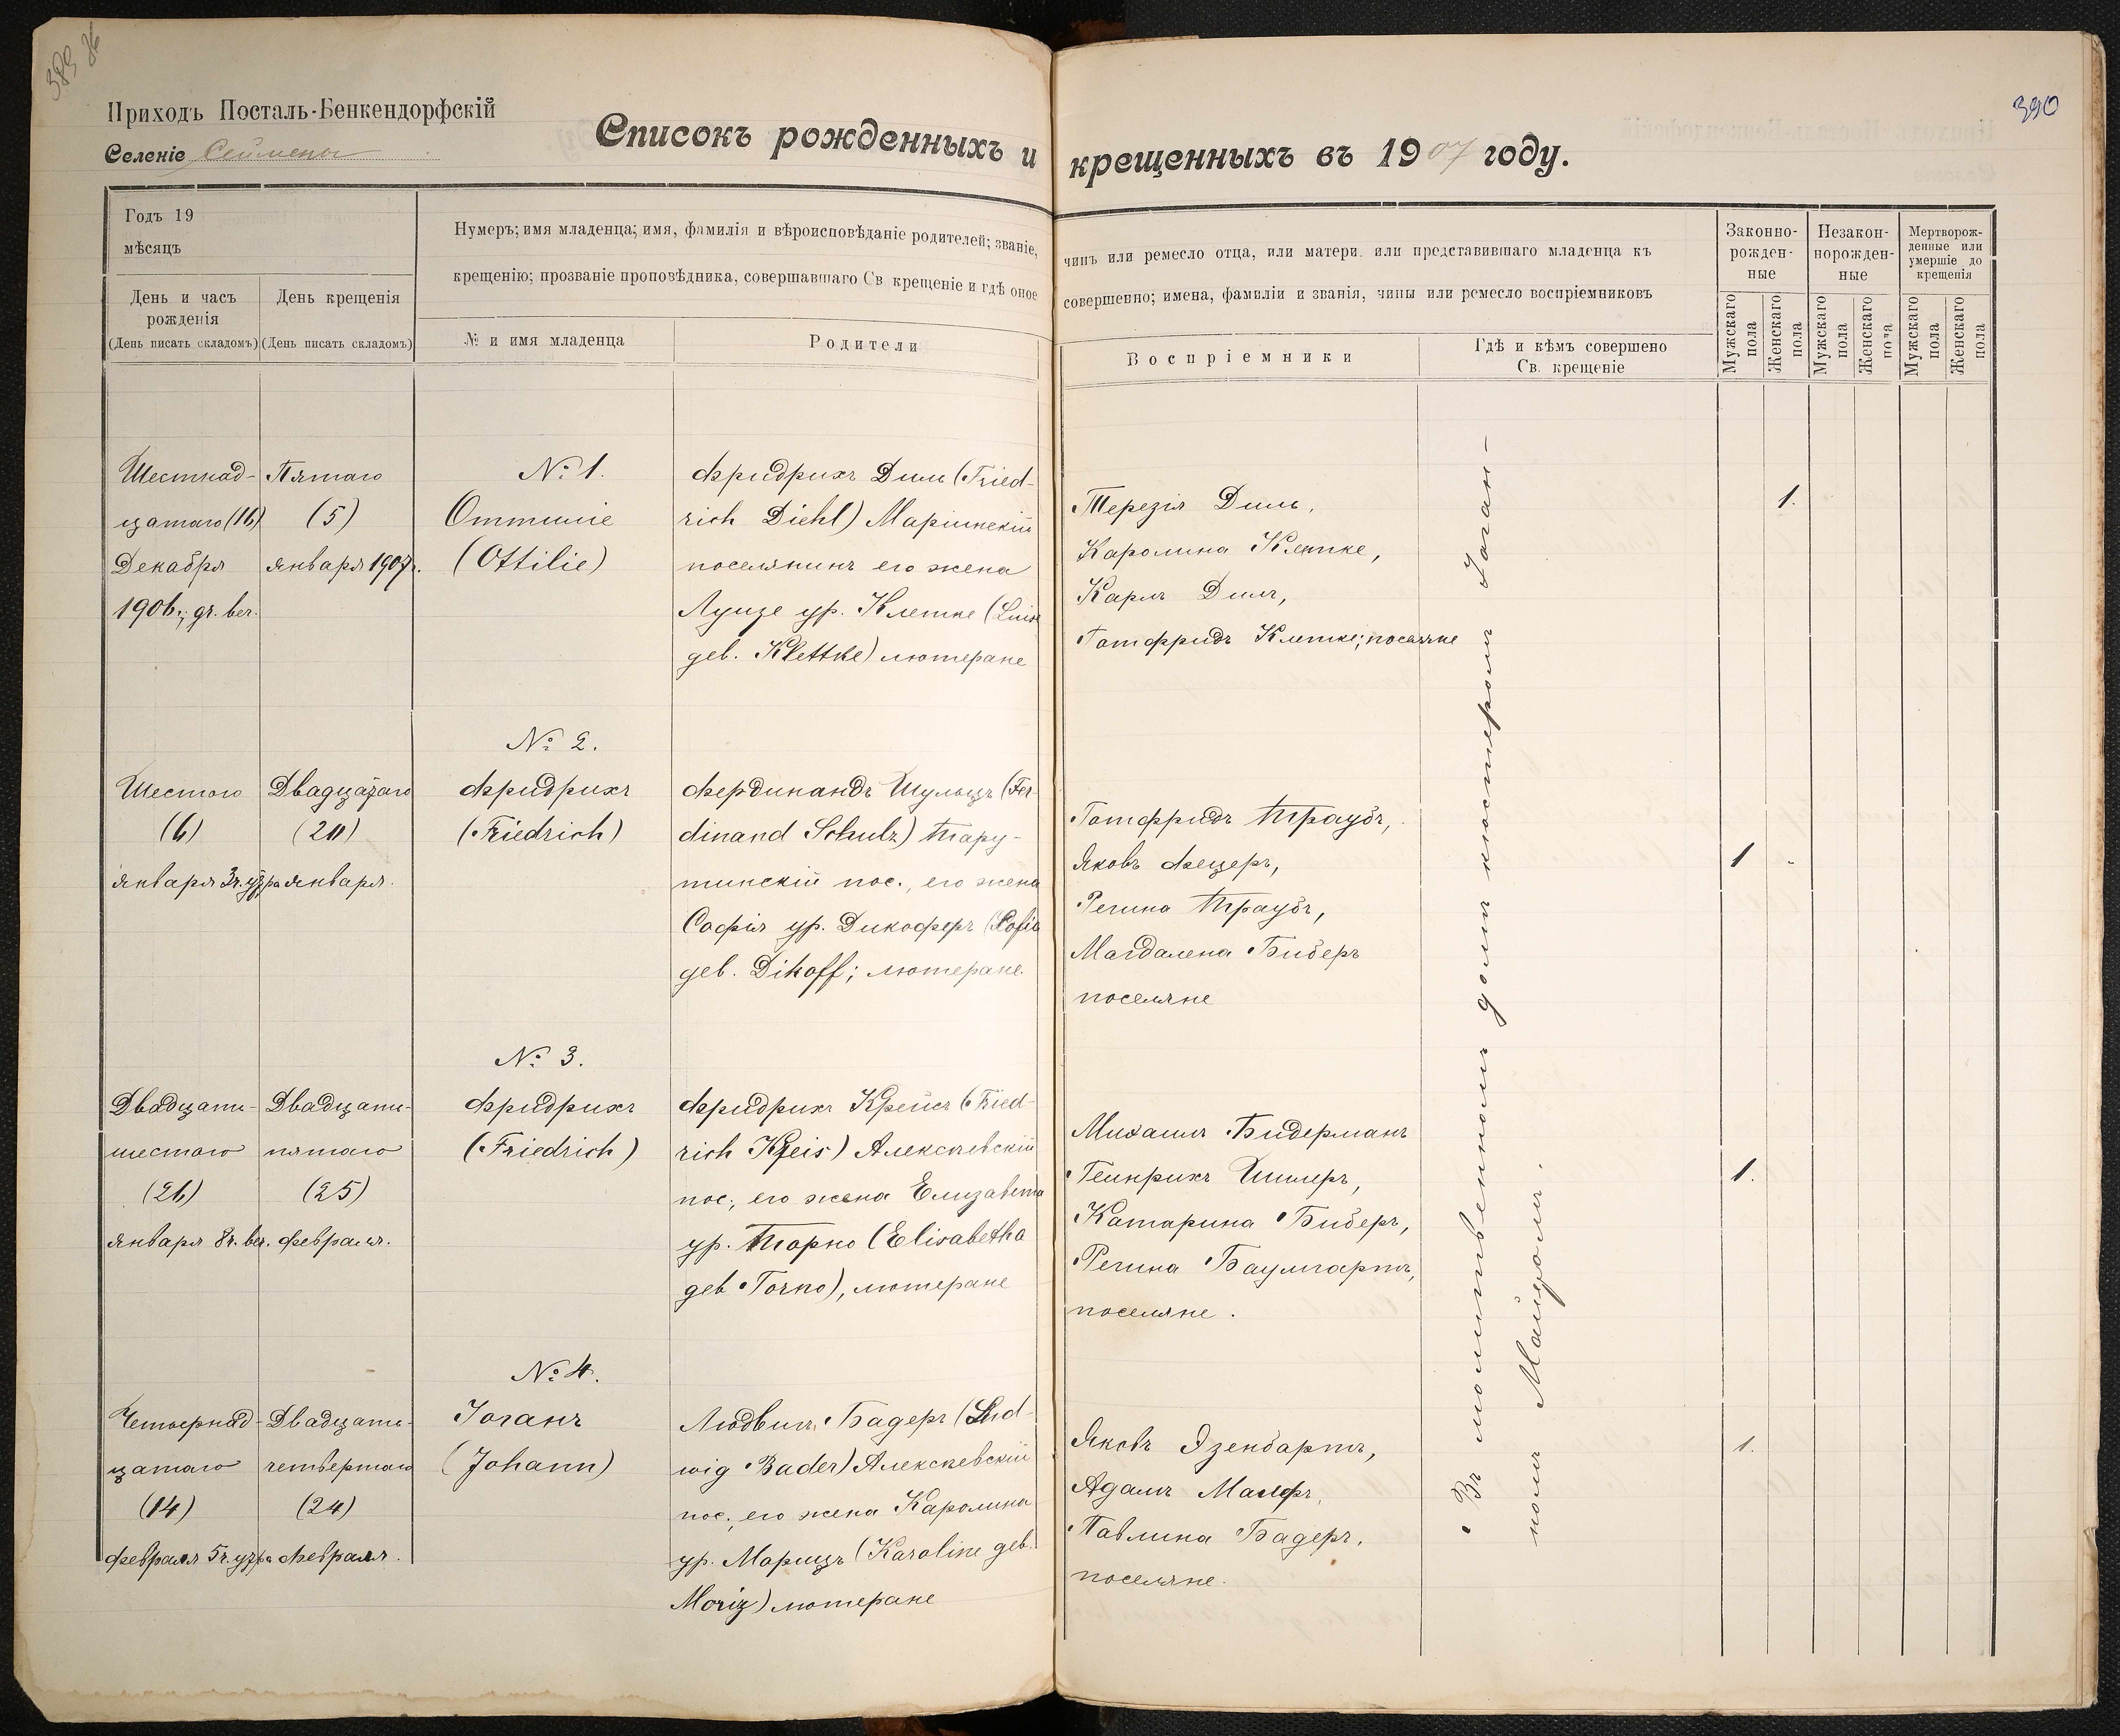 390
Приходъ Посталь-Бенкендорфскій
Селеніе Сеймены
Списокъ рожденныхъ и крещенныхъ въ 1907 году.
Годъ 19
мѣсяцъ
День и часъ рожденія
(День писать складомъ)
День крещенія
(День писать складомъ)
Нумеръ; имя младенца; имя, фамилія и вѣроисповѣданіе родителей; званіе, чинъ или ремесло отца, или матери или представившаго младенца къ
крещенію; прозваніе проповѣдника, совершавшаго Св крещеніе и гдѣ оное совершенно; имена, фамиліи и званія, чины или ремесло воспріемниковъ
№ и имя младенца
Родители
Воспріемники
Гдѣ и кѣмъ совершено
Св. крещеніе
Законно-
рожден-
ные
Незакон-
норожден-
ные
Мертворож-
денные или
умершіе до
крещенія
Мужскаго пола
Женскаго пола
Мужскаго пола
Женскаго пола
Мужскаго пола
Женскаго пола
Шестнад-
цатаго (16)
Декабря
1906
Пятаго
(5)
января 1907
№ 1.
Оттиліе
(Ottilie)
Фридрихъ Диль (Fried-
rich Diehl) Маріинскій
поселянинъ его жена
Луизе ур. Клетке (Luise
geb. Klettke) лютеране
Терезія Диль,
Каролина Клетке,
Карлъ Диль,
Готфридъ Клетке; поселяне
1.
Шестого
(6)
января 3ч. утра
Двадцатаго
(20)
января.
№ 2.
Фридрихъ
(Friedrich)
Фердинандъ Шульцъ (Fer-
dinand Schulz) Тару-
тинскій пос., его жена
Софія ур. Дикофъ (Sofia
geb. Dikoff; лютеране.
Готфридъ Траубъ,
Яковъ Фецеръ,
Регина Траубъ,
Магдалена Биберъ
поселяне
1
Двадцать-
шестого
(26)
января 8ч. веч.
Двадцать-
пятаго
(25)
февраля.
№ 3.
Фридрихъ
(Friedrich)
Фридрихъ Крейсъ (Fried-
rich Kreis) Алексѣевскій
пос., его жена Елизавета
ур. Торно (Elisabetha
geb Torno), лютеране
Михаилъ Бидерманъ
Генрихъ Шилеръ,
Катарина Биберъ,
Регина Баумгартъ,
поселяне.
1.
Четырнад-
цатаго
(14)
февраля 5ч. утра
Двадцать-
четвертаго
(24)
февраля.
№ 4.
Іоганъ
(Johann)
Людвигъ Бадеръ (Lud-
wig Bader) Алексѣевскій
пос., его жена Каролина
ур. Морицъ (Karoline geb.
Moriz) лютеране
Яковъ Эзенбартъ,
Адамъ
Павлина Бадеръ,
поселяне.
1.
Въ молитвенномъ домѣ кюстеромъ Іоган-
номъ Майеромъ.